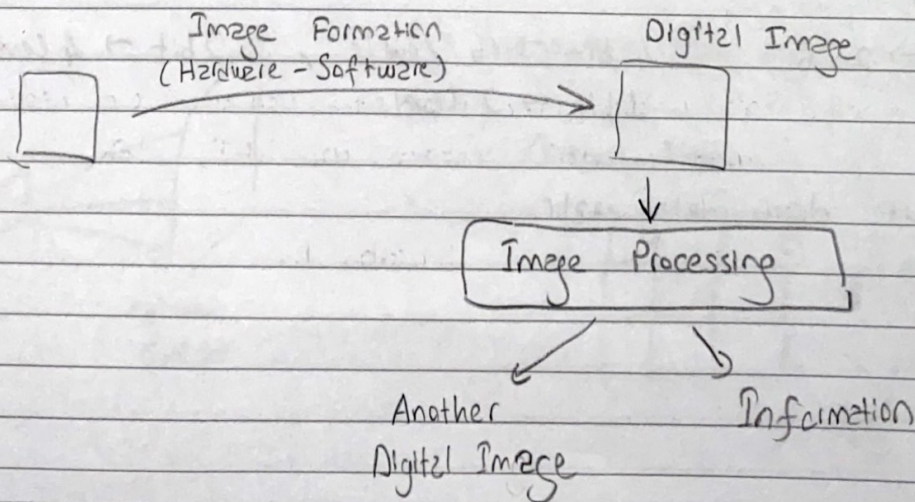 Image Formation
(Hardware - Software)
Digital Image
Image Processing
Another
Digital Image
Information